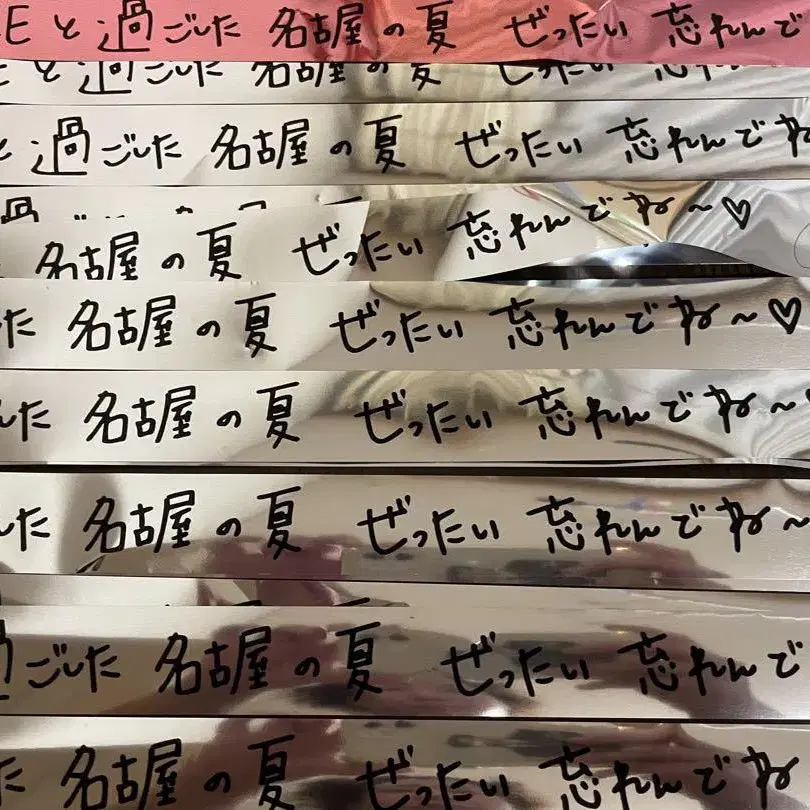 Eと過ごした 名古屋の夏 ぜったい 忘れんで
Eと過ごした 名古屋の夏 ぜったい 忘れんで
と過ごした 名古屋の夏 ぜったい 忘れんでね
名古屋の夏 ぜったい 忘れんでね〜♡
た 名古屋の夏 ぜったい 忘れんでね〜♡
した 名古屋の夏 ぜったい 忘れんでね〜
した 名古屋の夏 ぜったい 忘れんでね〜
過ごした 名古屋の夏 ぜったい 忘れんで
た 名古屋の夏 ぜったい 忘れんでね